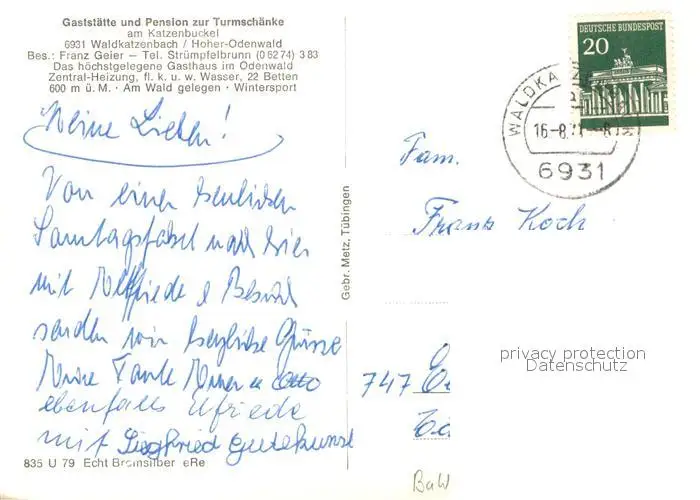 Gaststätte und Pension zur Turmschänke
am Katzenbuckel
6931 Waldkatzenbach / Hoher-Odenwald
Bes.: Franz Geier - Tel. Strümpfelbrunn (0 62 74) 3 83
Das höchstgelegene Gasthaus im Odenwald
Zentral-Heizung, fl. k. u. w. Wasser, 22 Betten
600 m ü. M. · Am Wald gelegen · Wintersport
Meine Lieben!
Von einer herrlichen
Samtagsfahrt nach hier
mit
senden wir herzliche Grüsse
Meine Tante
ebenfalls Elfriede
mit Siegfried Gutekunst
835 U 79 Echt Bromsilber eRe
Gebr. Metz, Tübingen
DEUTSCHE BUNDESPOST
20
WALDKA
16-8.71-8
6931
Fam.
Franz Koch
privacy protection
Datenschutz
747
BaW